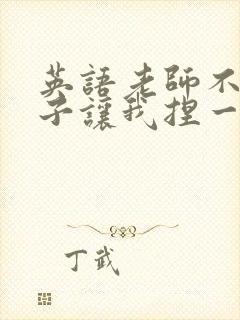 英語老師不
子讓我捏一
丁武